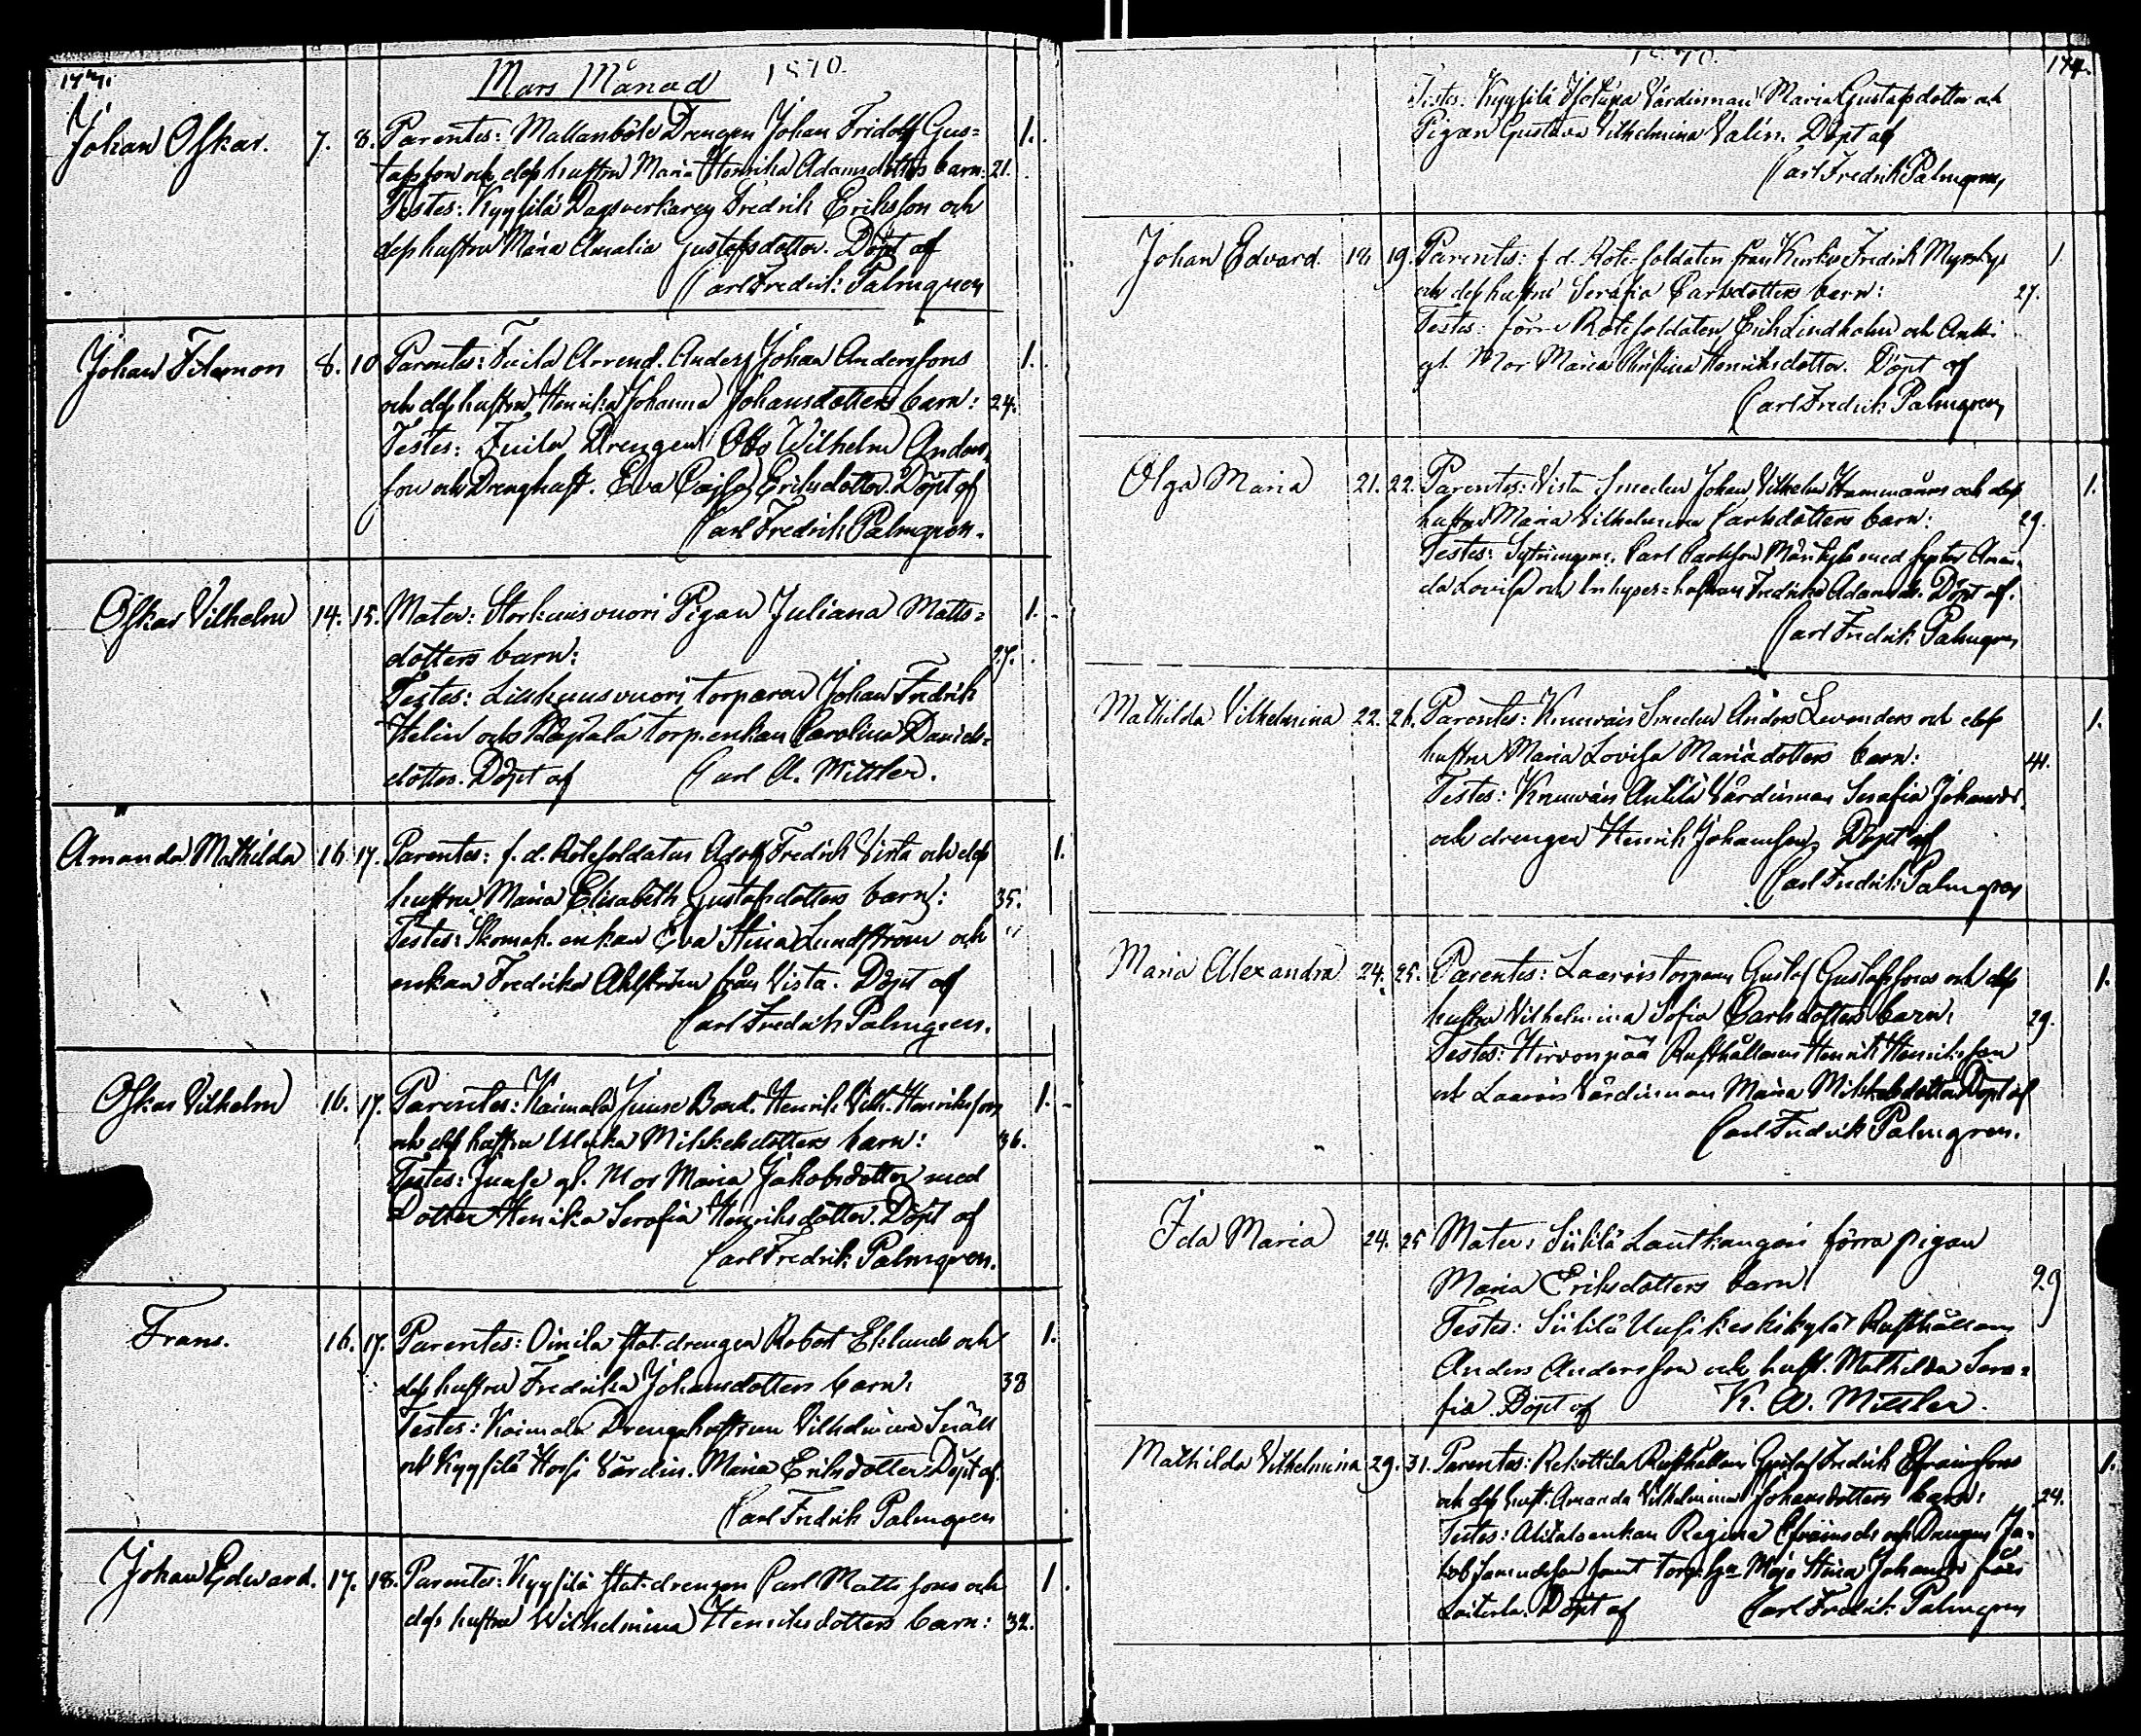 174.
Mars Månad 1870.
Johan Oskar. 7. 8. Parentes: Mallanböle Drengen Johan Fridolf Gus= 1.
tafsson och dess hustru Maria Henrika Adamsdotters barn: 21.
Testes: Kyysilä Dagsverkaren Fredrik Eriksson och
dess hustru Maria Amalia Gustafsdotter. Döpt af
Carl Fredrik Palmgren
Johan Filemon 8. 10 Parentes: Arrend. Anders Johan Anderssons 1.
och dess hustru Henrika Johanna Johansdotters barn: 24.
Testes: Drengen Otto Wilhelm Anders,
son och Drenghust. Eva Cajsa Eriksdotter. Döpt af
Carl Fredrik Palmgren.
Oskar Vilhelm 14. 15. Mater: Storkuusvuori Pigan Juliana Matts= 1.
dotters barn: 27.
Testes: torparen Johan Fredrik
Helin och torp.enkan Carolina Daniels=
dotter. Döpt af Carl A. Mittler.
Amanda Mathilda 16 17. Parentes: f. d. Rotesoldaten Adolf Fredrik Vista och dess 1.
hustru Maria Elisabeth Gustafsdotters barn: 35.
Testes: Skomak. enkan Eva Stina Lundström och
enkan Fredrika Ahlström från Vista. Döpt af
Carl Fredrik Palmgren.
Oskar Vilhelm 16. 17. Parentes: Kaimala Juuse Bond. Henrik Vilh. Henrikssons 1.
och dess hustru Ulrika Mikkelsdotters barn: 36.
Testes: Juuse gl. Mor Maria Jakobsdotter med
Dotter Henrika Serafia Henriksdotter. Döpt af
Carl Fredrik Palmgren.
Frans. 16. 17. Parentes: Oinila stat.drengen Robert Eklunds och 1.
dess hustru Fredrika Johansdotters barn: 38
Testes: Kaimala Drengshustrun Vilhelmina Snäll
och Kyysilä Värdin. Maria Eriksdotter Döpt af.
Carl Fredrik Palmgren
Johan Edward. 17. 18. Parentes: Kyysilä stat.drengen Carl Mattssons och 1.
dess hustru Wilhelmina Henriksdotters barn: 32.
1870. 174.
Testes: Kyysilä Värdinnan Maria Gustafsdotter och
Pigan Gustava Vilhelmina Valin. Döpt af
Carl Fredrik Palmgren,
Johan Edvard. 18 19. Parentes: f. d. Rote-soldaten från Fredrik 1.
och dess hustru Serafia Carlsdotters barn: 27.
Testes: förre Rotesoldaten Erik Lindholm och
gl. Mor Maria Christina Henriksdotter. Döpt af
Carl Fredrik Palmgren,
Olga Maria 21. 22. Parentes: Vista Smeden Johan Vilhelm och dess 1.
hustru Maria Vilhelmina Carlsdotters barn: 29.
Testes: Carl Carlsson med Aman,
da Lovisa och Inhyses=hustrun Fredrika Döpt af.
Carl Fredrik Palmgren
Mathilda Vilhelmina 22. 26. Parentes: Smeden Anders Levanders och dess 1.
hustru Maria Lovisa Mariadotters barn: 41.
Testes: Anttila Värdinnan Serafia Johansd.
och drengen Henrik Johansson, Döpt af
Carl Fredrik Palmgren
Maria Alexandra 24. 25. Parentes: torparen Gustaf Gustafssons och dess 1.
hustru Vilhelmina Sofia Carlsdotters barn: 29.
Testes: Hirvonpää Rusthållaren Henrik Henriksson
och Värdinnan Maria Mikkelsdotter Döpt af
Carl Fredrik Palmgren.
Ida Maria 24. 25 Mater: förra pigan
Maria Eriksdotters barn 29
Testes: Uusikeskikylä Rusthållaren
Anders Andersson och hust. Mathilda Sera=
fia. Döpt af K. A. Mittler.
Mathilda Vilhelmina 29. 31. Parentes: Rekottila Rusthållaren Gustaf Fredrik Efraimssons 1.
och dess hust. Amanda Vilhelmina Johansdotters barn: 24.
Testes: enkan Regina och Drengen Ja=
kob Samuelsson samt Maja Stina Johansd från
Döpt af Carl Fredrik Palmgren